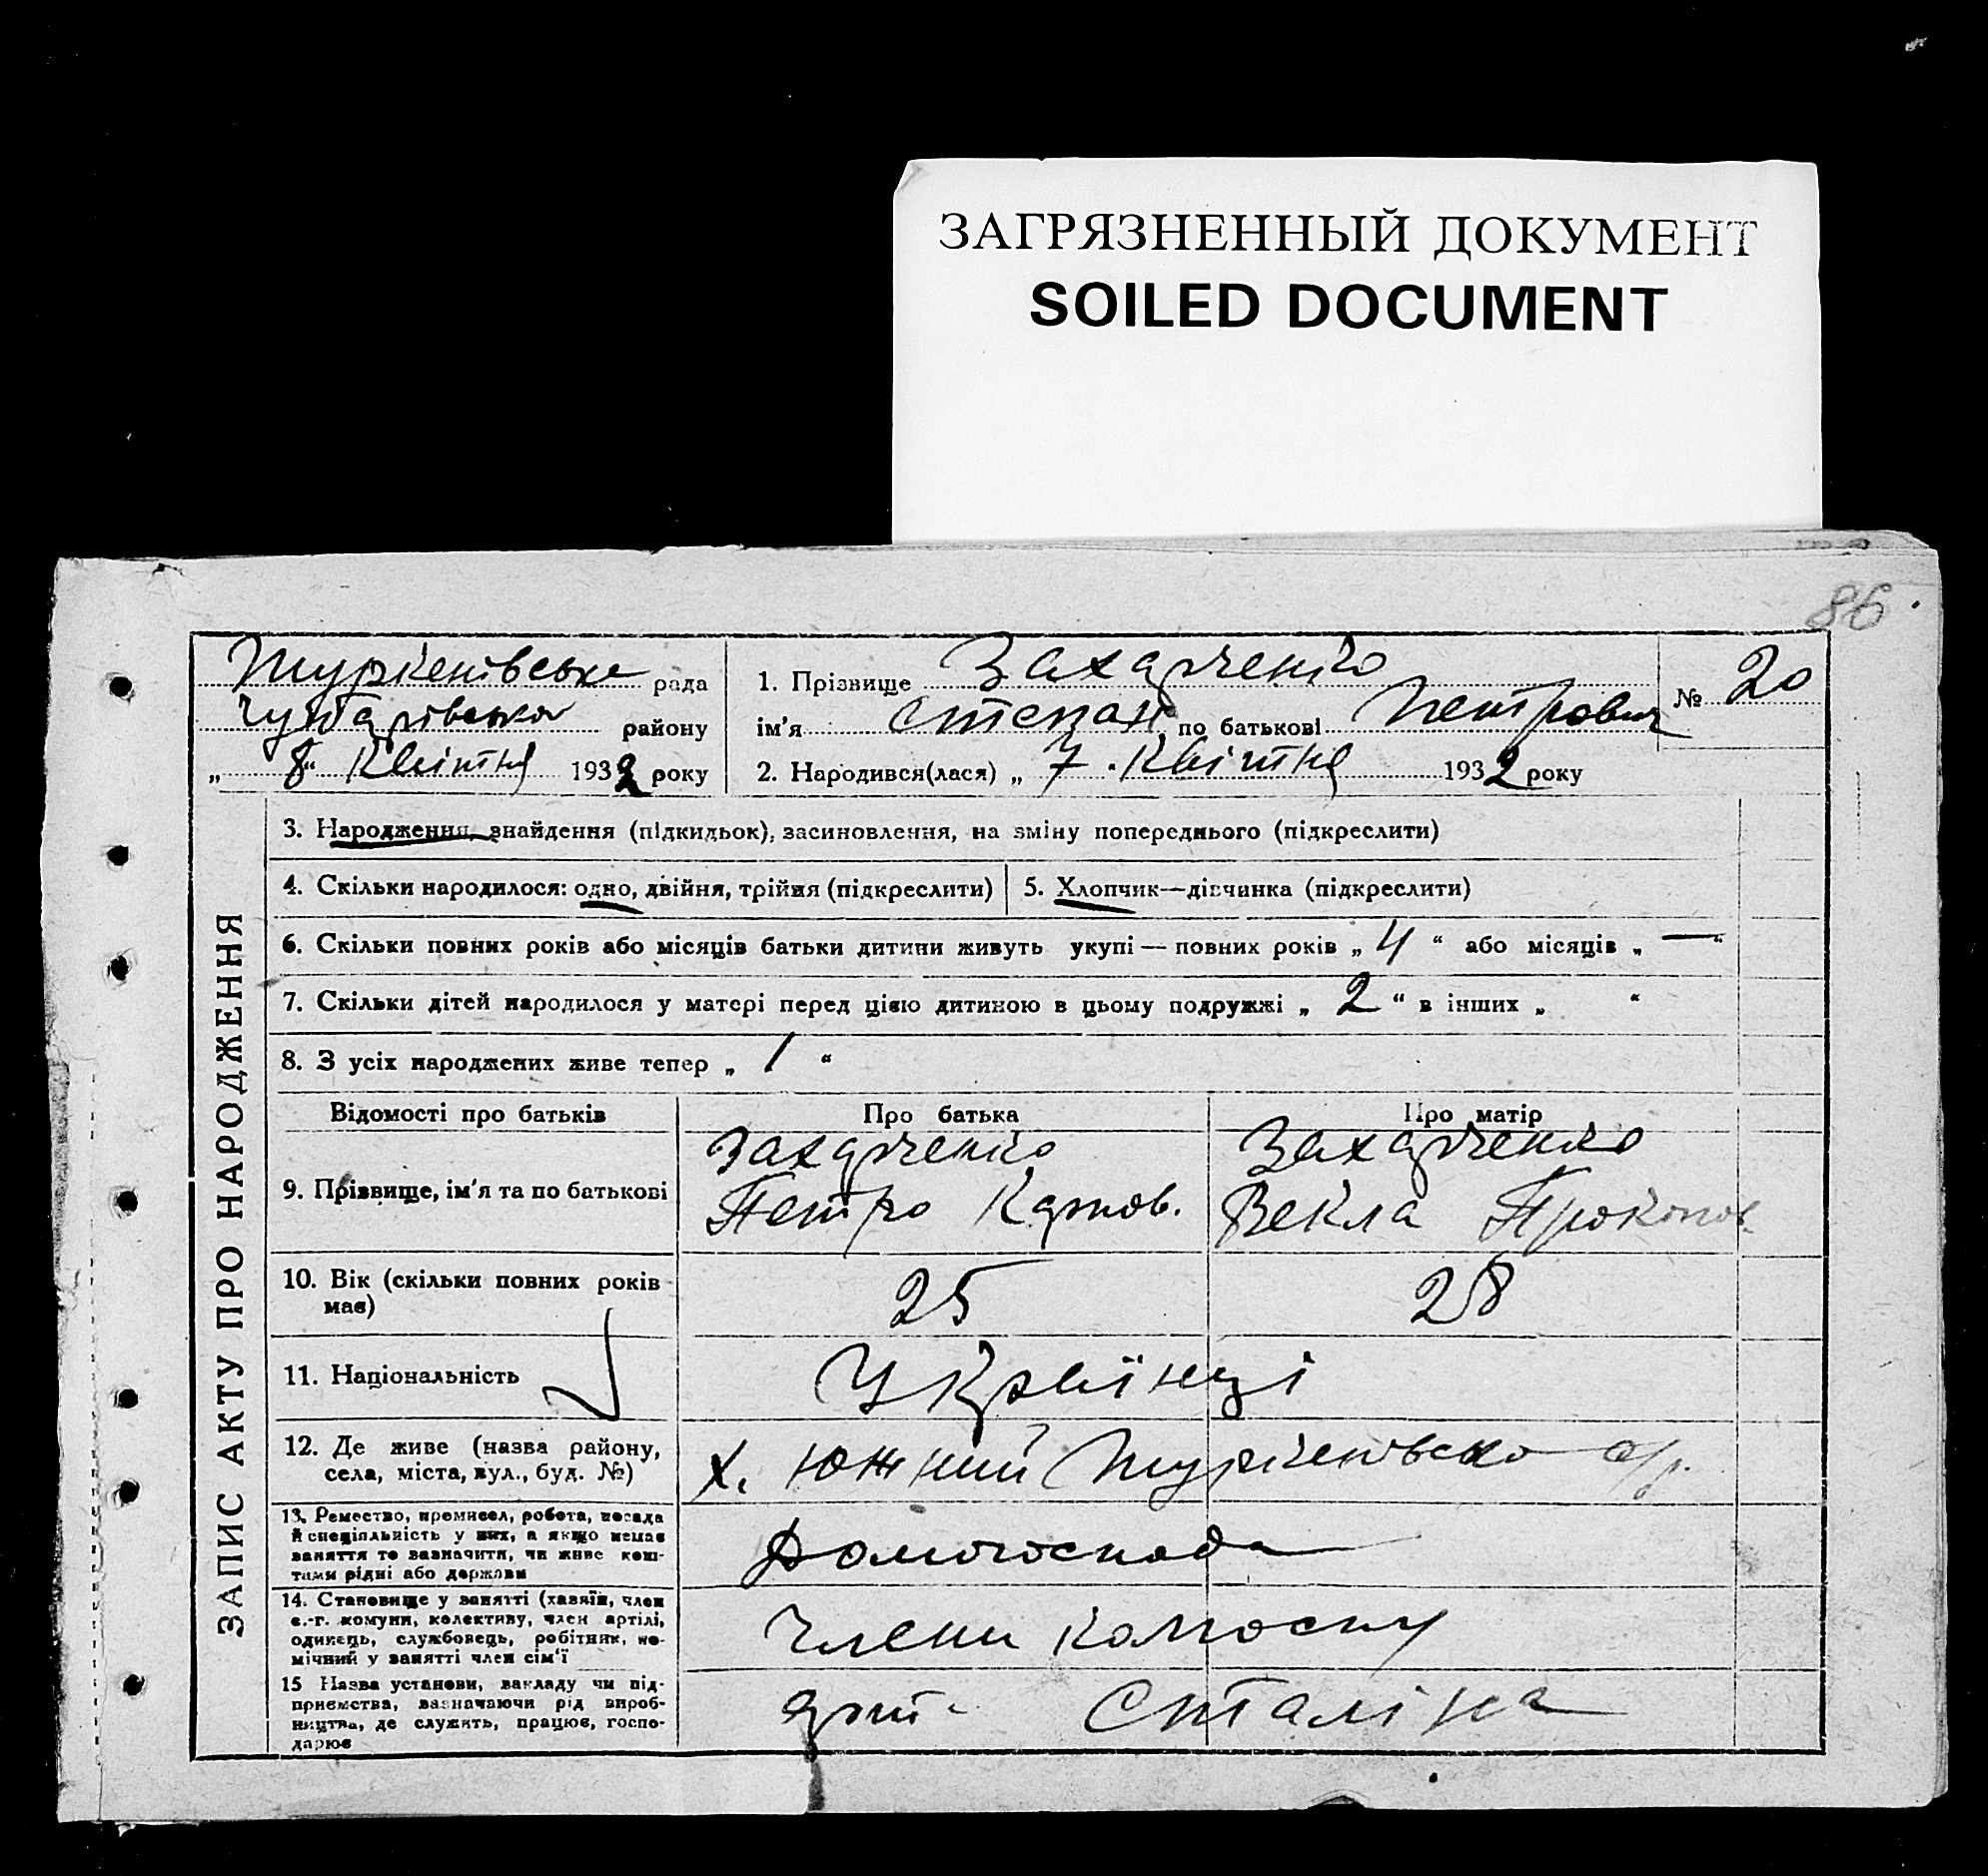 ЗАГРЯЗНЕННЫЙ ДОКУМЕНТ
SOILED DOCUMENT
86
рада
району
„ 8 “ Квітня 1932 року
1. Прізвище Захарченко
ім'я Степан, по батькові Петрович
2. Народився(лася) „ 7 . Квітня 1932 року
№ 20
ЗАПИС АКТУ ПРО НАРОДЖЕННЯ
3. Народження, знайдення (підкидьок), засиновлення, на зміну попереднього (підкреслити)
4. Скільки народилося: одно, двійня, трійня (підкреслити)
5. Хлопчик—дівчинка (підкреслити)
6. Скільки повних років або місяців батьки дитини живуть укупі — повних років „ 4 “ або місяців „ — “
7. Скільки дітей народилося у матері перед цією дитиною в цьому подружжі „ 2 “ в інших „ “
8. З усіх народжених живе тепер „ 1 “
Відомості про батьків
Про батька
Про матір
9. Прізвище, ім'я та по батькові
Захарченко
Петро Карпов.
Захарченко
Векла Прокопов.
10. Вік (скільки повних років
має)
25
28
11. Національність
Українці
12. Де живе (назва району,
села, міста, вул., буд. №)
х. Южний с/р.
13. Ремество, промисел, робота, посада
й спеціяльність у них, а якщо немає
заняття то зазначити, чи живе кош-
тами рідні або держави
14. Становище у занятті (хазяїн, член
с.-г. комуни, колективу, член артілі,
одинець, службовець, робітник, по-
мічний у занятті член сім'ї
Члени колгоспу
15 Назва установи, закладу чи під-
приємства, зазначаючи рід вироб-
ництва, де служить, працює, госпо-
дарює
арт- Сталіна